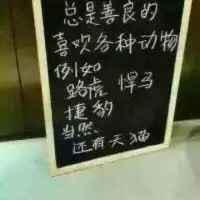 总是善良的
喜欢各种动物
例如
路虎 悍马
捷豹
当然
还有天猫